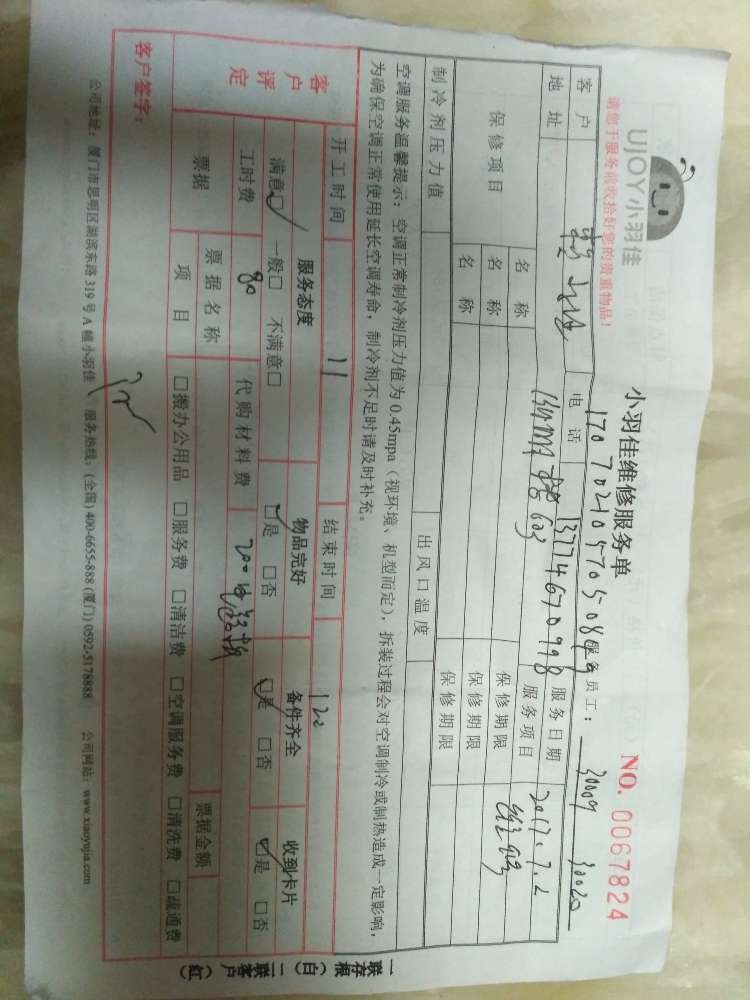 UJOY小羽佳
小羽佳维修服务单
NO. 0067824
请您于服务前收拾好您的贵重物品!
服务员工: 30009 30020
客户
电话 13774670998
服务日期 2017.7.2
地址
603
服务项目
保修项目
名称
保修期限
名称
保修期限
名称
保修期限
制冷剂压力值
出风口温度
空调服务温馨提示:空调正常制冷剂压力值为0.45mpa(视环境、机型而定),拆装过程会对空调制冷或制热造成一定影响,
为确保空调正常使用延长空调寿命,制冷剂不足时请及时补充。
开工时间 11
结束时间 120
客户评定
服务态度
物品完好
备件齐全
收到卡片
满意□ 一般□ 不满意□
□是 □否
□是 □否
□是 □否
工时费 80
代购材料费
票据
票据名称
票据金额
项目
□搬办公用品 □服务费 □清洁费 □空调服务费 □清洗费 □疏通费
客户签字:
公司地址:厦门市思明区湖滨东路319号A幢小羽佳 服务热线:(全国)400-6655-888 (厦门)0592-5178888 公司网站:www.xiaoyujia.com
一联存根(白) 二联客户(红)